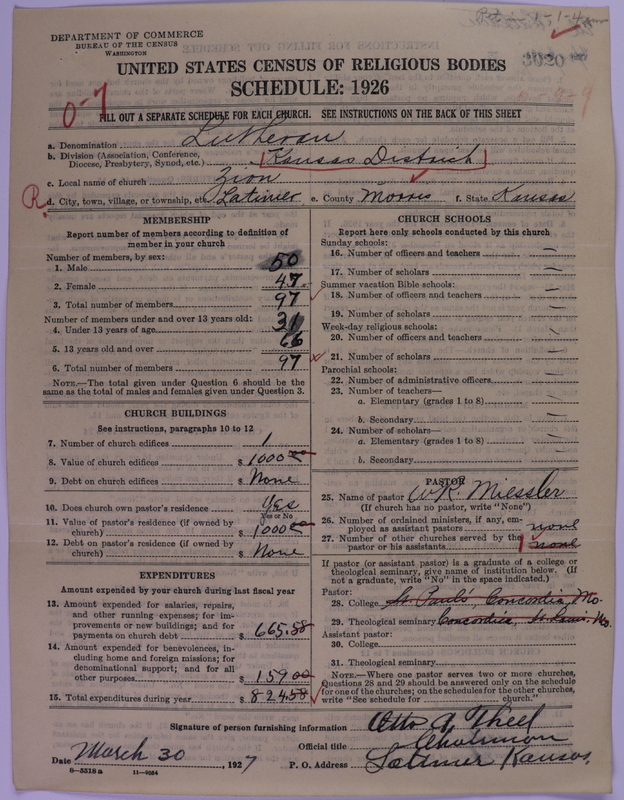 DEPARTMENT OF COMMERCE
BUREAU OF THE CENSUS
WASHINGTON
UNITED STATES CENSUS OF RELIGIOUS BODIES
SCHEDULE: 1926
0-7
FILL OUT A SEPARATE SCHEDULE FOR EACH CHURCH. SEE INSTRUCTIONS ON THE BACK OF THIS SHEET
a. Denomination Lutheran
b. Division (Association, Conference, Diocese, Presbytery, Synod, etc.) Kansas District
c. Local name of church Zion
R. d. City, town, village, or township, etc. Latimer e. County Morris f. State Kansas
MEMBERSHIP
Report number of members according to definition of
member in your church
Number of members, by sex:
1. Male 50
2. Female 47
3. Total number of members 97
Number of members under and over 13 years old:
4. Under 13 years of age 31
5. 13 years old and over 66
6. Total number of members 97
NOTE.—The total given under Question 6 should be the
same as the total of males and females given under Question 3.
CHURCH BUILDINGS
See instructions, paragraphs 10 to 12
7. Number of church edifices 1
8. Value of church edifices $ 1000 00
9. Debt on church edifices $ None
10. Does church own pastor's residence Yes
Yes or No
11. Value of pastor's residence (if owned by
church) $ 1000 00
12. Debt on pastor's residence (if owned by
church) $ None
EXPENDITURES
Amount expended by your church during last fiscal year
13. Amount expended for salaries, repairs,
and other running expenses; for im-
provements or new buildings; and for
payments on church debt $ 665.58
14. Amount expended for benevolences, in-
cluding home and foreign missions; for
denominational support; and for all
other purposes $ 159 00
15. Total expenditures during year $ 824.58
CHURCH SCHOOLS
Report here only schools conducted by this church
Sunday schools:
16. Number of officers and teachers —
17. Number of scholars —
Summer vacation Bible schools:
18. Number of officers and teachers —
19. Number of scholars —
Week-day religious schools:
20. Number of officers and teachers —
21. Number of scholars —
Parochial schools:
22. Number of administrative officers —
23. Number of teachers—
a. Elementary (grades 1 to 8) —
b. Secondary —
24. Number of scholars—
a. Elementary (grades 1 to 8) —
b. Secondary —
PASTOR
25. Name of pastor W.K. Miessler
(If church has no pastor, write "None")
26. Number of ordained ministers, if any, em-
ployed as assistant pastors none
27. Number of other churches served by the
pastor or his assistants 1 none
If pastor (or assistant pastor) is a graduate of a college or
theological seminary, give name of institution below. (If
not a graduate, write "No" in the space indicated.)
Pastor:
28. College St. Paul's, Concordia, Mo.
29. Theological seminary Concordia, St. Louis, Mo.
Assistant pastor:
30. College
31. Theological seminary
NOTE.—Where one pastor serves two or more churches,
Questions 28 and 29 should be answered only on the schedule
for one of the churches; on the schedules for the other churches,
write "See schedule for church."
Signature of person furnishing information Otto A Theel
Official title Chairman
Date March 30, 1927 P. O. Address Latimer Kansas.
8—5518 a 11—9264